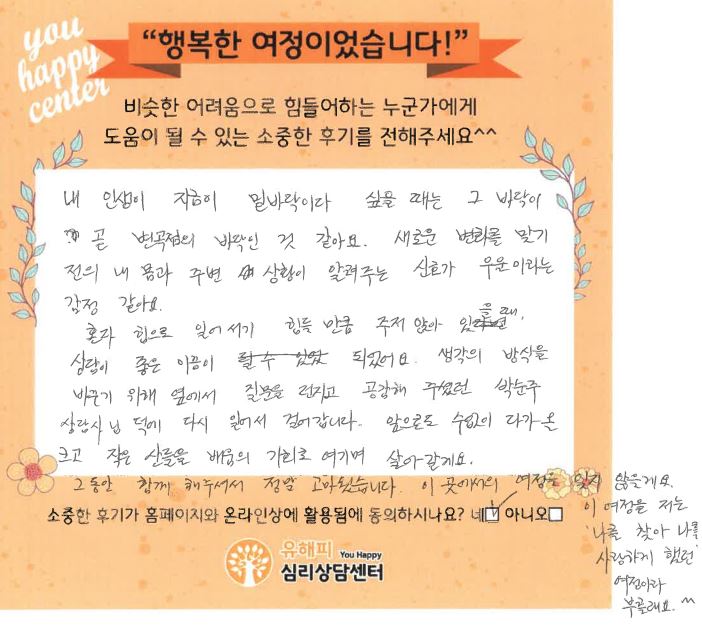 you
happy
center
“행복한 여정이었습니다!”
비슷한 어려움으로 힘들어하는 누군가에게
도움이 될 수 있는 소중한 후기를 전해주세요^^
내 인생이 지금이 밑바닥이다 싶을 때는 그 바닥이
곧 변곡점의 바닥인 것 같아요. 새로운 변화를 맞기
전의 내 몸과 주변 상황이 알려주는 신호가 우울이라는
감정 같아요.
혼자 힘으로 일어서기 힘들 만큼 주저 앉아 있을 때,
상담이 좋은 이끎이 되었어요. 생각의 방식을
바꾸기 위해 옆에서 질문을 던지고 공감해 주셨던 박순주
상담사님 덕에 다시 일어서 걸어갑니다. 앞으로도 수없이 다가올
크고 작은 산들을 배움의 기회로 여기며 살아갈게요.
그동안 함께 해주셔서 정말 고마웠습니다. 이 곳에서의 여정을 잊지 않을게요.
이 여정을 저는
'나를 찾아 나를
사랑하게 했던'
여정이라
부를래요. ^^
소중한 후기가 홈페이지와 온라인상에 활용됨에 동의하시나요? 네☑ 아니오□
유해피 You Happy
심리상담센터